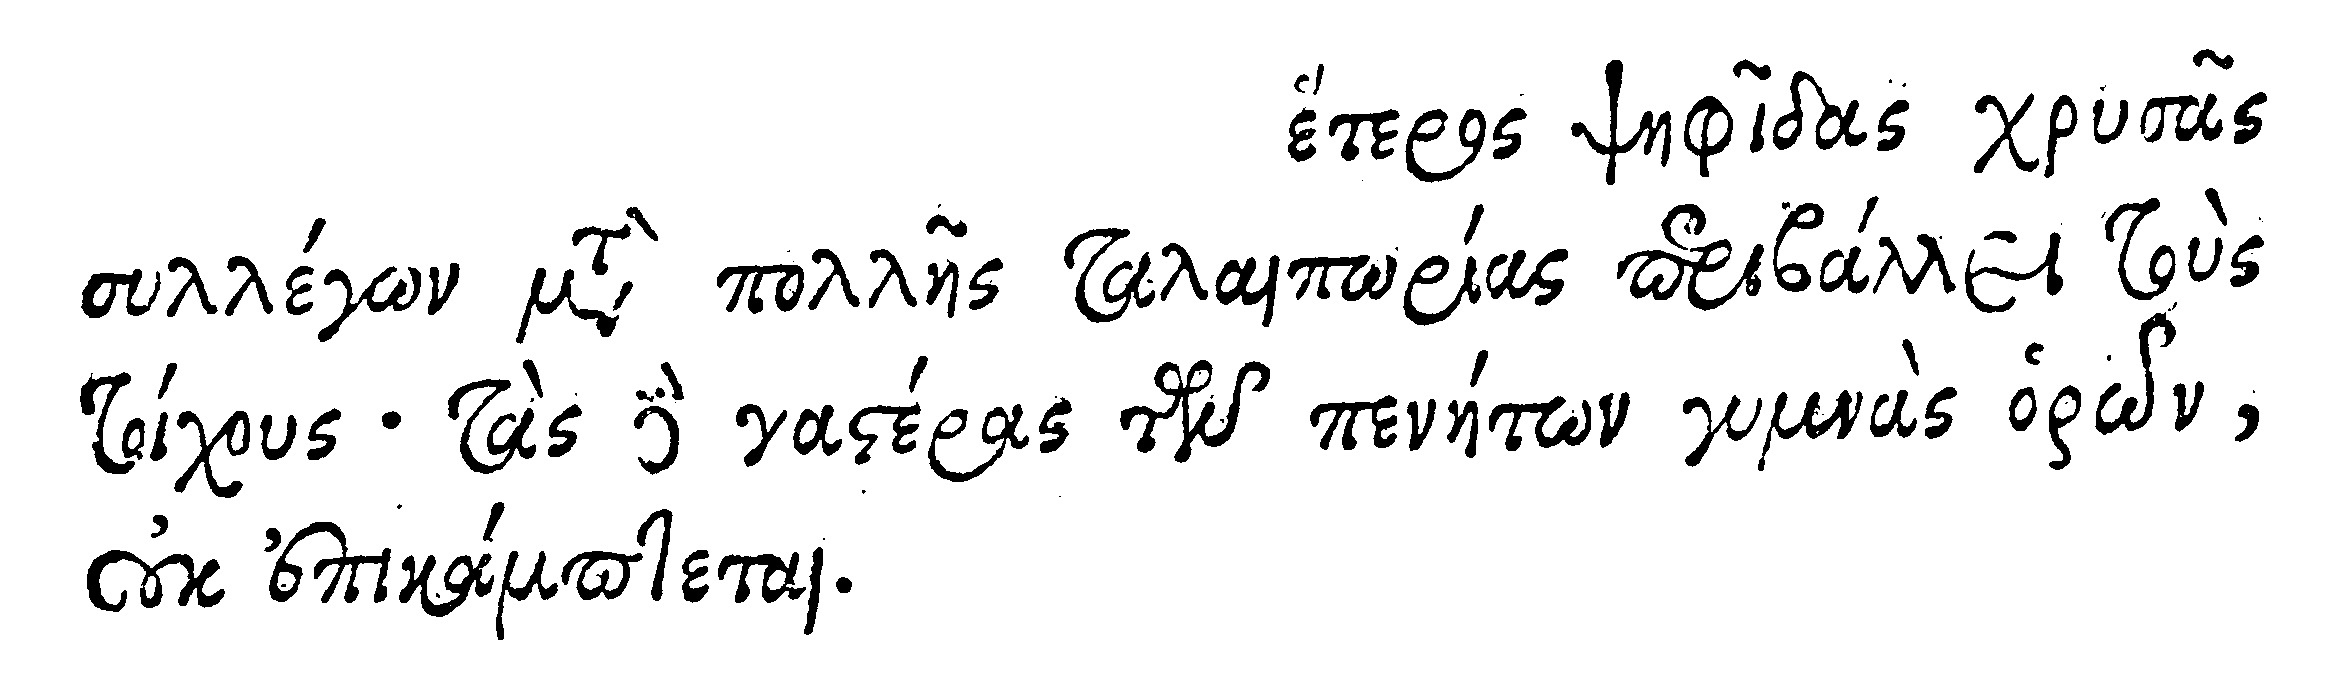 ἕτερος ψηφῖδας χρυσᾶς
συλλέγων μετὰ πολλῆς ταλαιπωρίας περιβάλλει τοὺς
τοίχους · τὰς δὲ γαστέρας τῶν πενήτων γυμνὰς ὁρῶν,
οὐκ ἐπικάμπτεται.